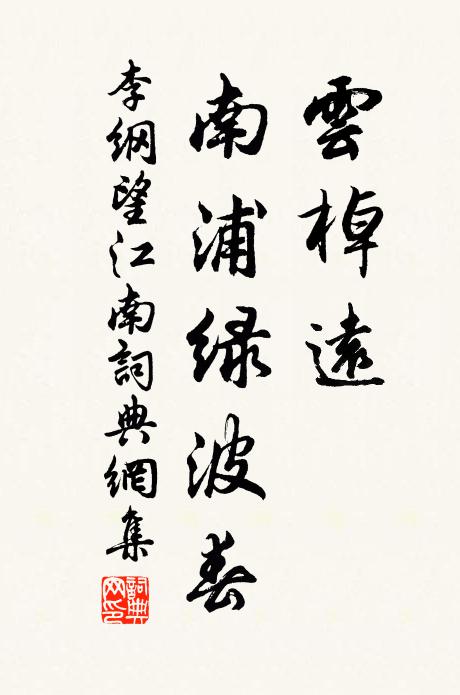 雲棹遠
南浦绿波春
李纲望江南詞典網集
詞典網印